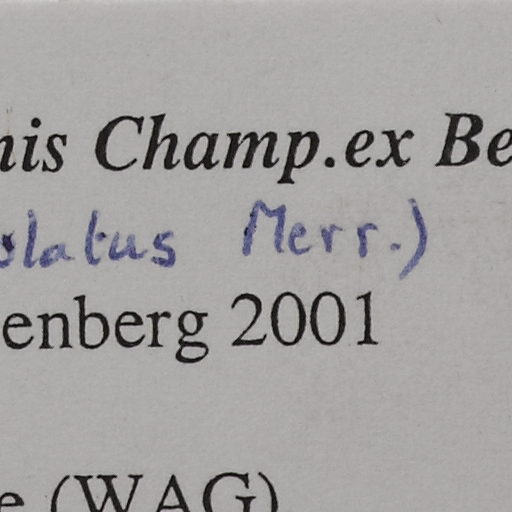 nis Champ.ex Be
olatus Merr.)
enberg 2001
e (WAG)